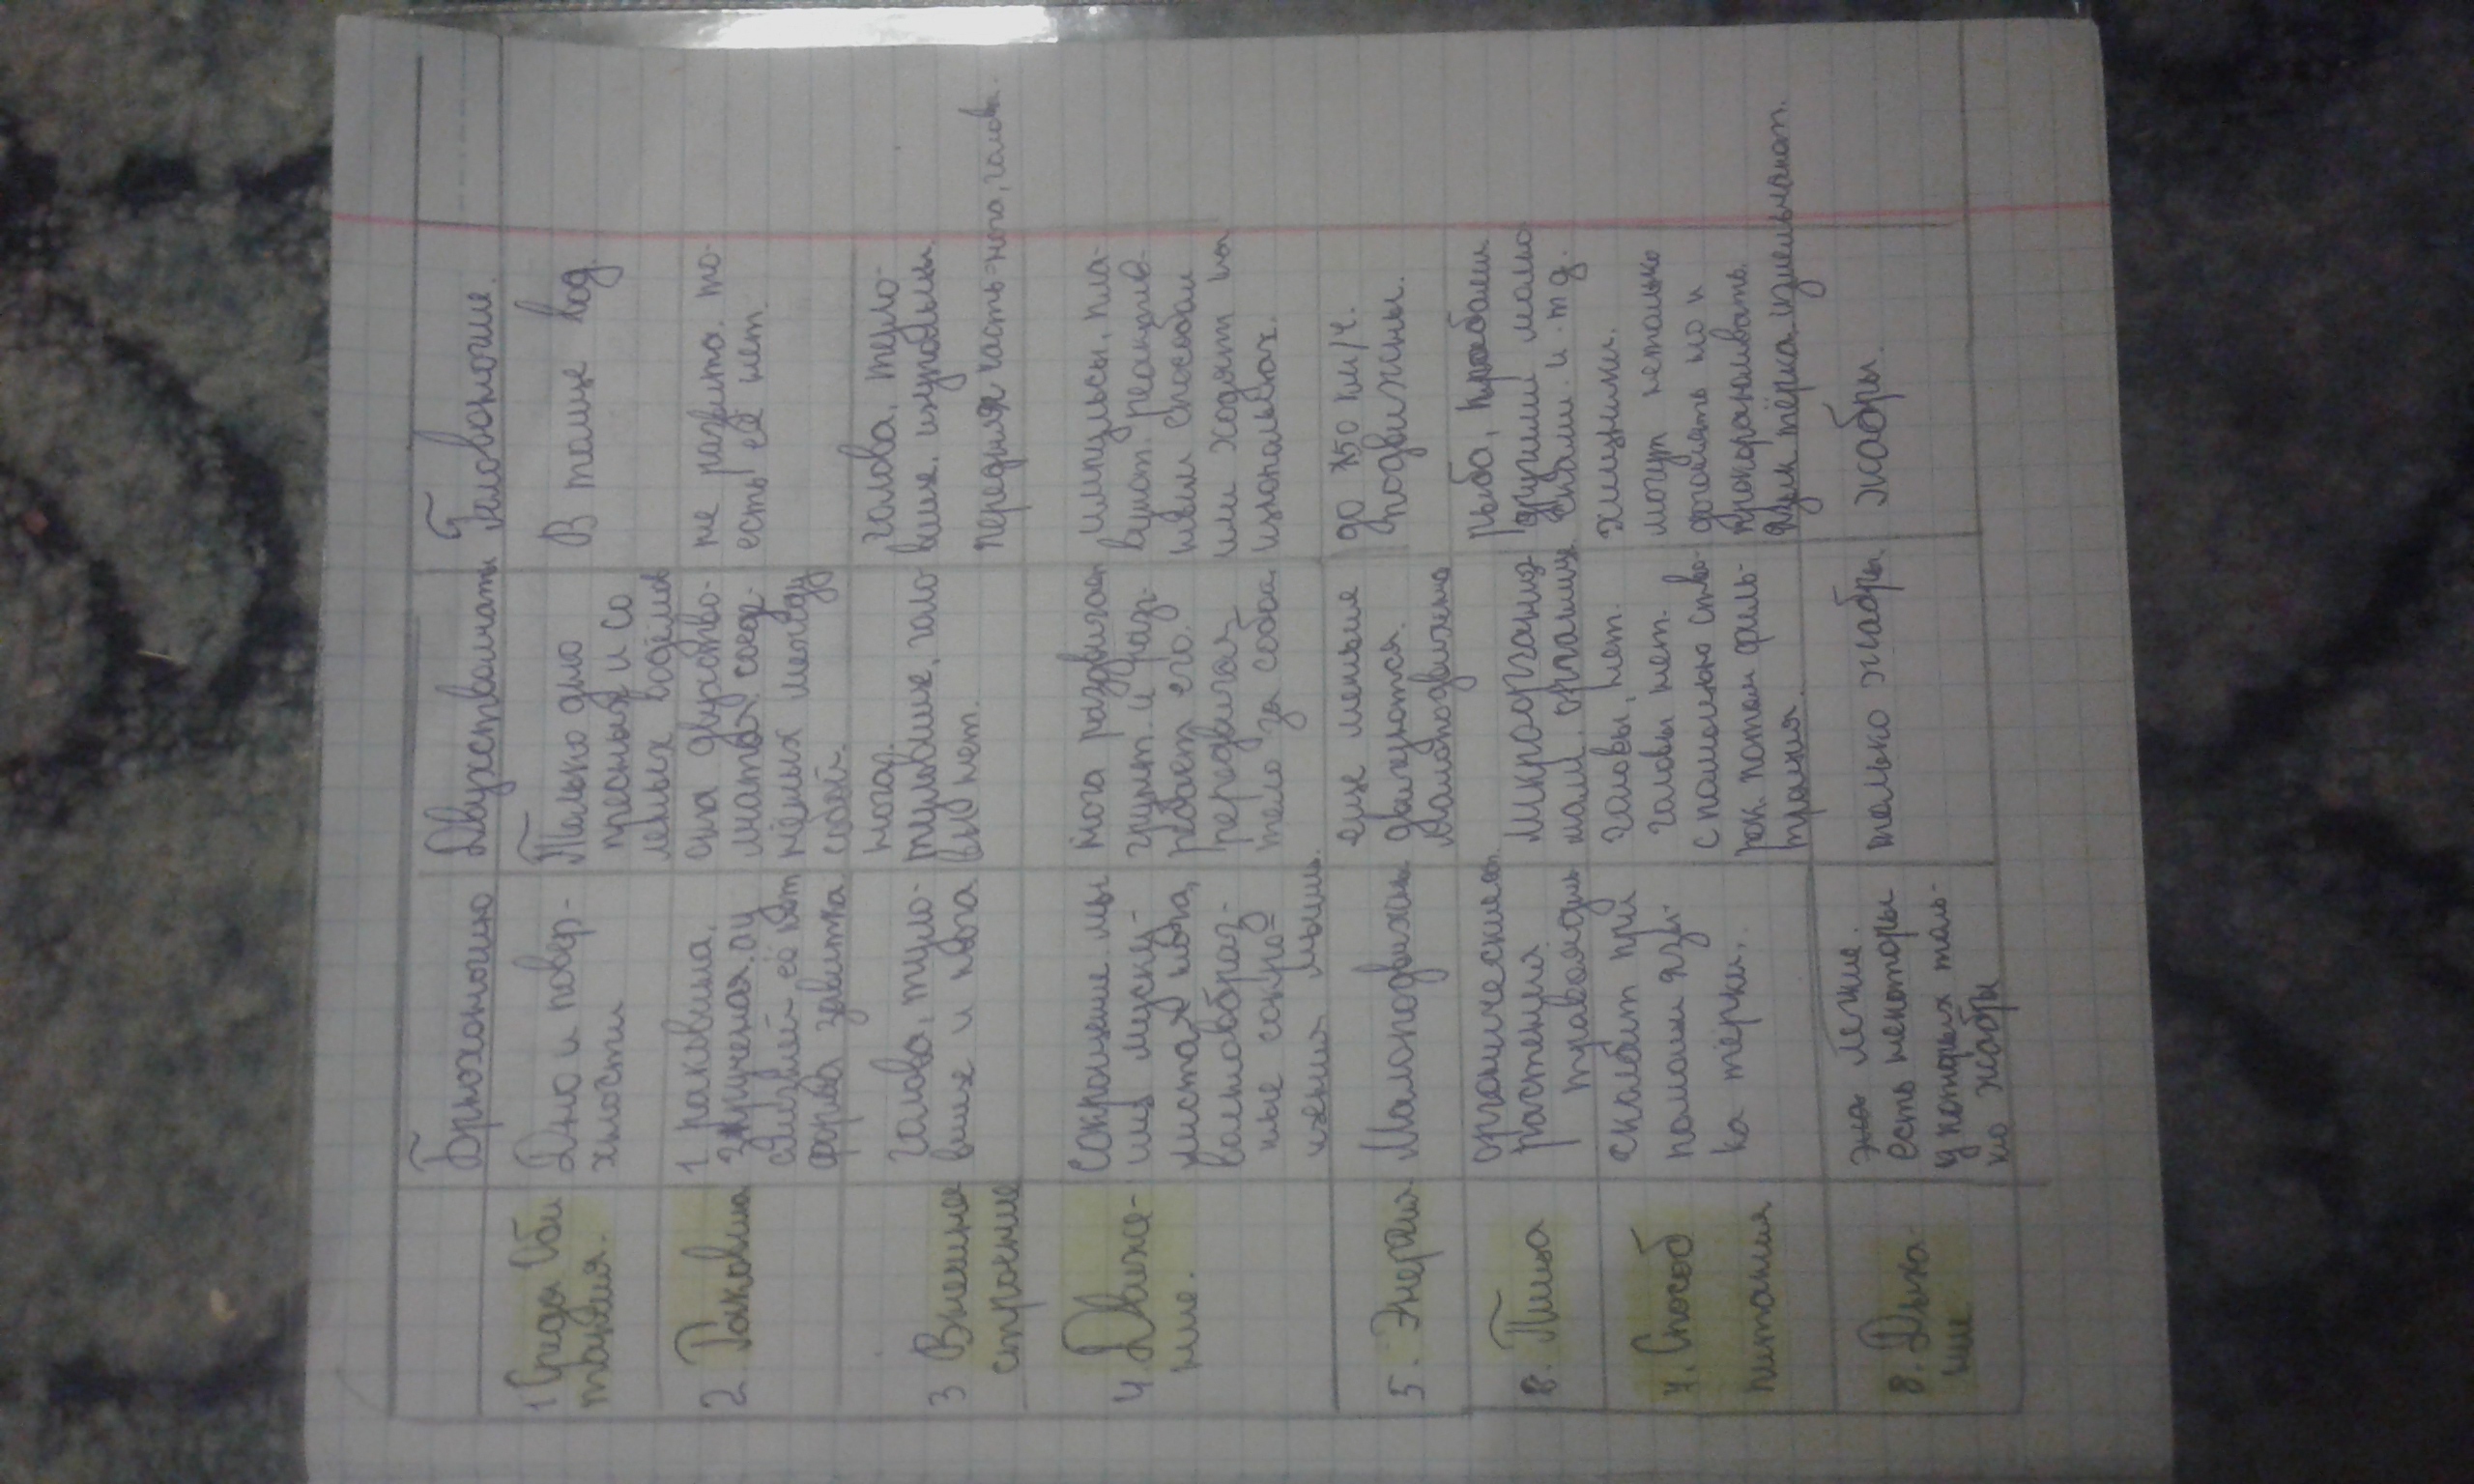 Брюхоногие Двухстворчатые Головоногие.
1 Среда Оби
тания.
Дно и повер-
хности
Только дно
пресных и со
лёных водоёмов
В толще вод.
2. Раковина
1 раковина.
закрученная. а у
слизней её нет
форма завитка
она двухство-
чатая. соед-
нёных между
собой.
не развита. то
есть её нет.
3 Внешнее
строение
голова, туло-
вище и нога
нога,
туловище, голо
вы нет.
голова. туло-
вище. щупальцы
передняя часть-нога, голова.
4. Движе-
ние.
Сокращение мы
шц муску-
листая нога,
волнообраз-
ные сокра-
щения мышц.
нога раздвигает
грунт. и
его.
передвигая
тело за собой.
импульсы, пла-
вуют. реактив-
ным способом
или ходят на
щупальцах.
5. Энергия
Малоподвижны
еще меньше
двигуются.
малоподвижны
до 50 км/ч.
подвижны.
8. Пища
органические
растения
травоядны
микроорганиз
мами. органич
рыба, крабами
другими моллю
сками. и. т д.
7. Способ
питания
скабат при
помощи язы-
ка тёрки.
головы, нет.
головы нет.
с помощью ство
рок. потом филь-
трация.
хищники.
могут нетолько
но и
язык тёрка. измельчают.
8. Дыха-
ние
лёгкие.
есть некоторы
у которых толь-
ко жабры
только жабры
жабры.